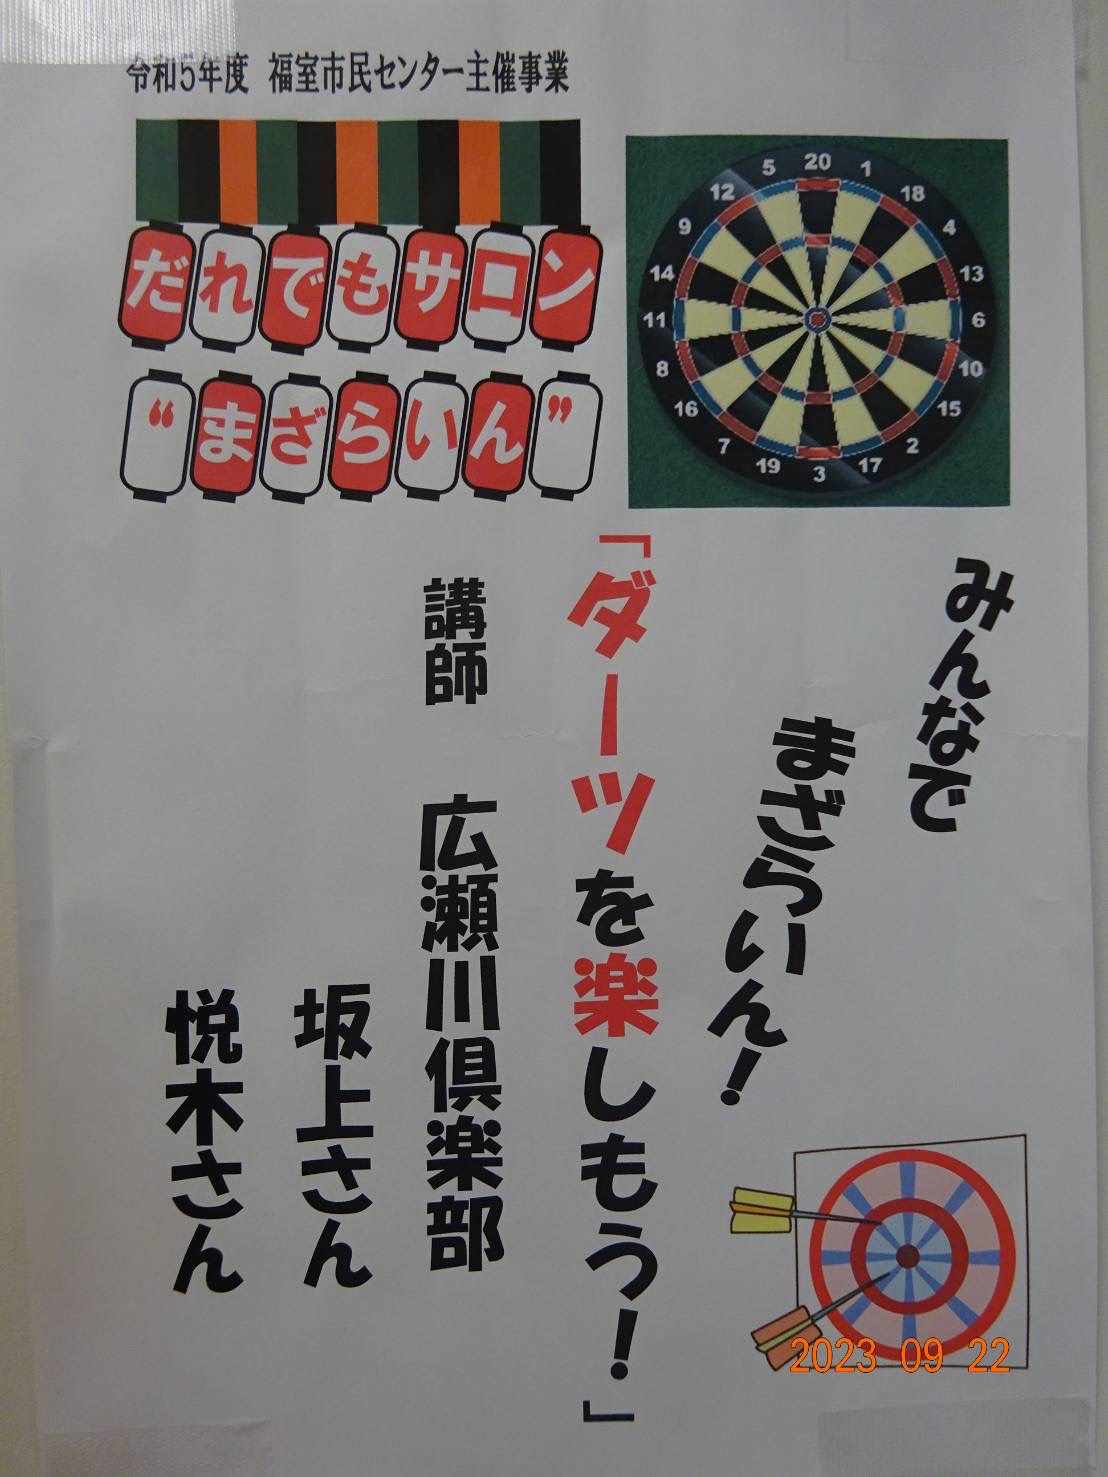 令和5年度 福室市民センター主催事業
だれでもサロン
“まざらいん”
20
1
18
4
13
6
10
15
2
17
3
19
7
16
8
11
14
9
12
5
みんなで
まざらいん！
「ダーツを楽しもう！」
講師 広瀬川倶楽部
坂上さん
悦木さん
2023 09 22